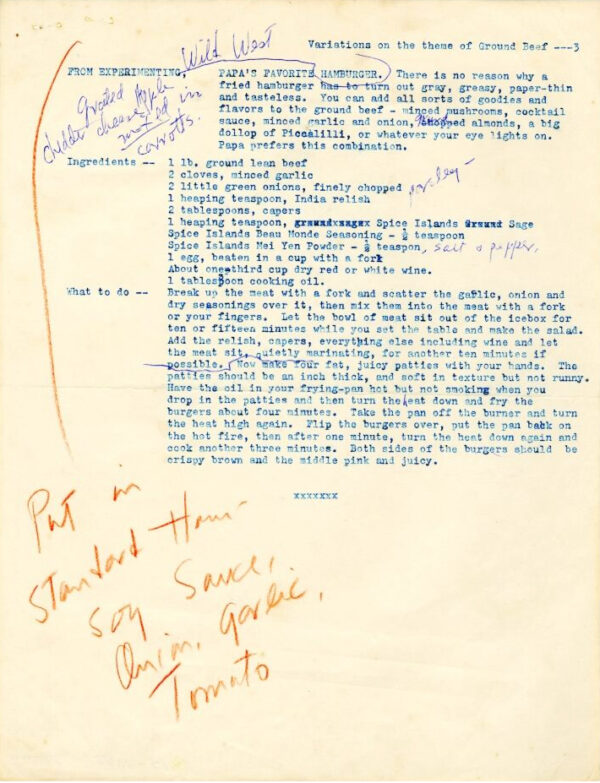 Variations on the theme of Ground Beef ---3
Wild West
FROM EXPERIMENTING, PAPA'S FAVORITE HAMBURGER. There is no reason why a
fried hamburger has to turn out gray, greasy, paper-thin
and tasteless. You can add all sorts of goodies and
flavors to the ground beef - minced mushrooms, cocktail
sauce, minced garlic and onion, chopped almonds, a big
dollop of Piccalilli, or whatever your eye lights on.
Papa prefers this combination.
grated apple
cheddar cheese
mixed in
carrots.
Ingredients -- 1 lb. ground lean beef
2 cloves, minced garlic
2 little green onions, finely chopped parsley-
1 heaping teaspoon, India relish
2 tablespoons, capers
1 heaping teaspoon, Spice Islands Sage
Spice Islands Beau Monde Seasoning - ½ teaspoon
Spice Islands Mei Yen Powder - ½ teaspon, salt & pepper,
1 egg, beaten in a cup with a fork
About one-third cup dry red or white wine.
1 tablespoon cooking oil.
What to do -- Break up the meat with a fork and scatter the garlic, onion and
dry seasonings over it, then mix them into the meat with a fork
or your fingers. Let the bowl of meat sit out of the icebox for
ten or fifteen minutes while you set the table and make the salad.
Add the relish, capers, everything else including wine and let
the meat sit, quietly marinating, for another ten minutes if
possible. Now make four fat, juicy patties with your hands. The
patties should be an inch thick, and soft in texture but not runny.
Have the oil in your frying-pan hot but not smoking when you
drop in the patties and then turn the heat down and fry the
burgers about four minutes. Take the pan off the burner and turn
the heat high again. Flip the burgers over, put the pan back on
the hot fire, then after one minute, turn the heat down again and
cook another three minutes. Both sides of the burgers should be
crispy brown and the middle pink and juicy.
xxxxxxx
Put in
Standard Ham-
Soy Sauce,
Onion, Garlic,
Tomato